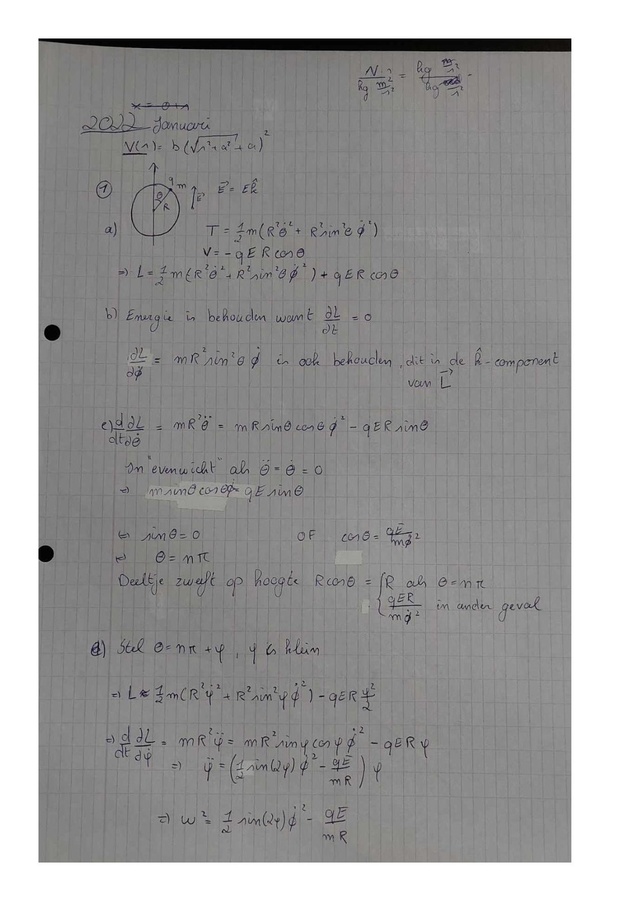 N / (kg m²/s²) = kg m/s² / (kg m/s²)
2022 Januari
V(r) = b(√(r²+a²) + a)²
① q m θ R E⃗ E⃗ = Ek̂
a) T = ½ m(R²θ̇² + R² sin²θ φ̇²)
V = -qER cosθ
⇒ L = ½ m(R²θ̇² + R² sin²θ φ̇²) + qER cosθ
b) Energie is behouden want ∂L/∂t = 0
∂L/∂φ̇ = mR² sin²θ φ̇ is ook behouden, dit is de k̂-component
van L⃗
c) d/dt ∂L/∂θ̇ = mR²θ̈ = mR sinθ cosθ φ̇² - qER sinθ
In "evenwicht" als θ̈ = θ̇ = 0
⇒ m sinθ cosθ φ̇ = qE sinθ
⇔ sinθ = 0 OF cosθ = qE/mφ̇²
⇔ θ = nπ
Deeltje zweeft op hoogte R cosθ = { R als θ = nπ
{ qER/mφ̇² in ander geval
d) Stel θ = nπ + φ, φ is klein
⇒ L ≈ ½ m(R²φ̇² + R² sin²φ ϕ̇²) - qER φ²/2
⇒ d/dt ∂L/∂φ̇ = mR²φ̈ = mR² sinφ cosφ ϕ̇² - qER φ
⇒ φ̈ = (½ sin(2φ) ϕ̇² - qE/mR) φ
⇒ ω² = ½ sin(2φ) ϕ̇² - qE/mR